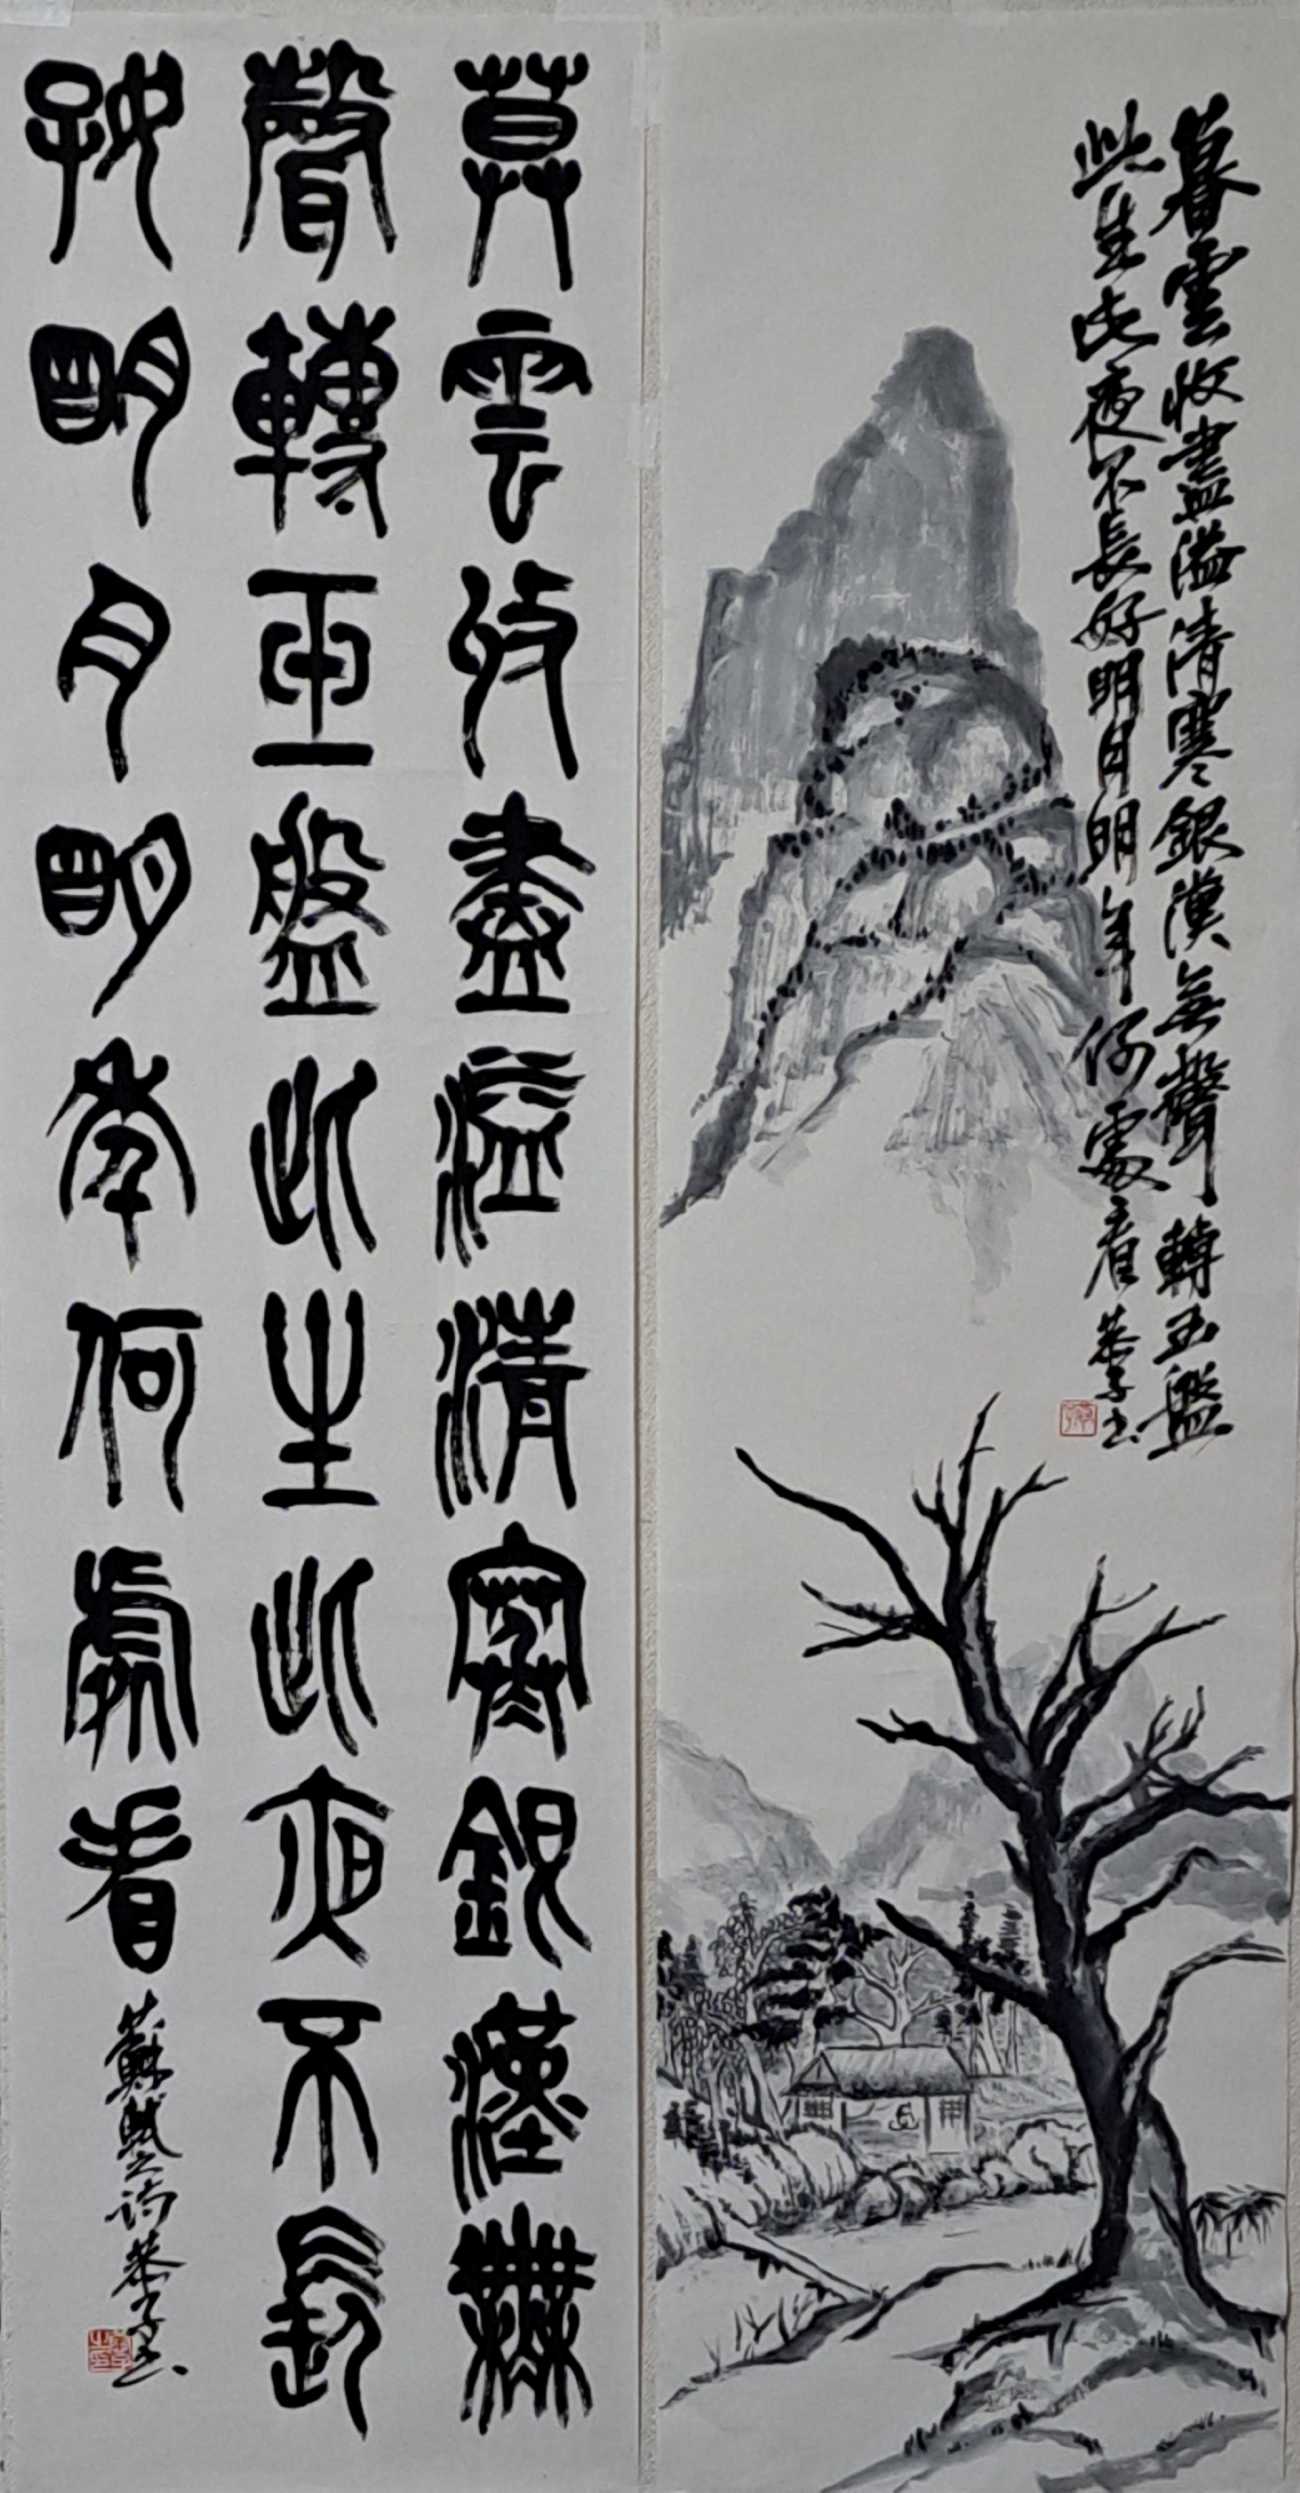 暮雲收盡溢清寒銀漢無聲轉玉盤
此生此夜不長好明月明年何處看
恭子書
莫雲收盡溢清寒銀漢無
聲轉玉盤此生此夜不長
好明月明年何處看
蘇軾之詩恭子書